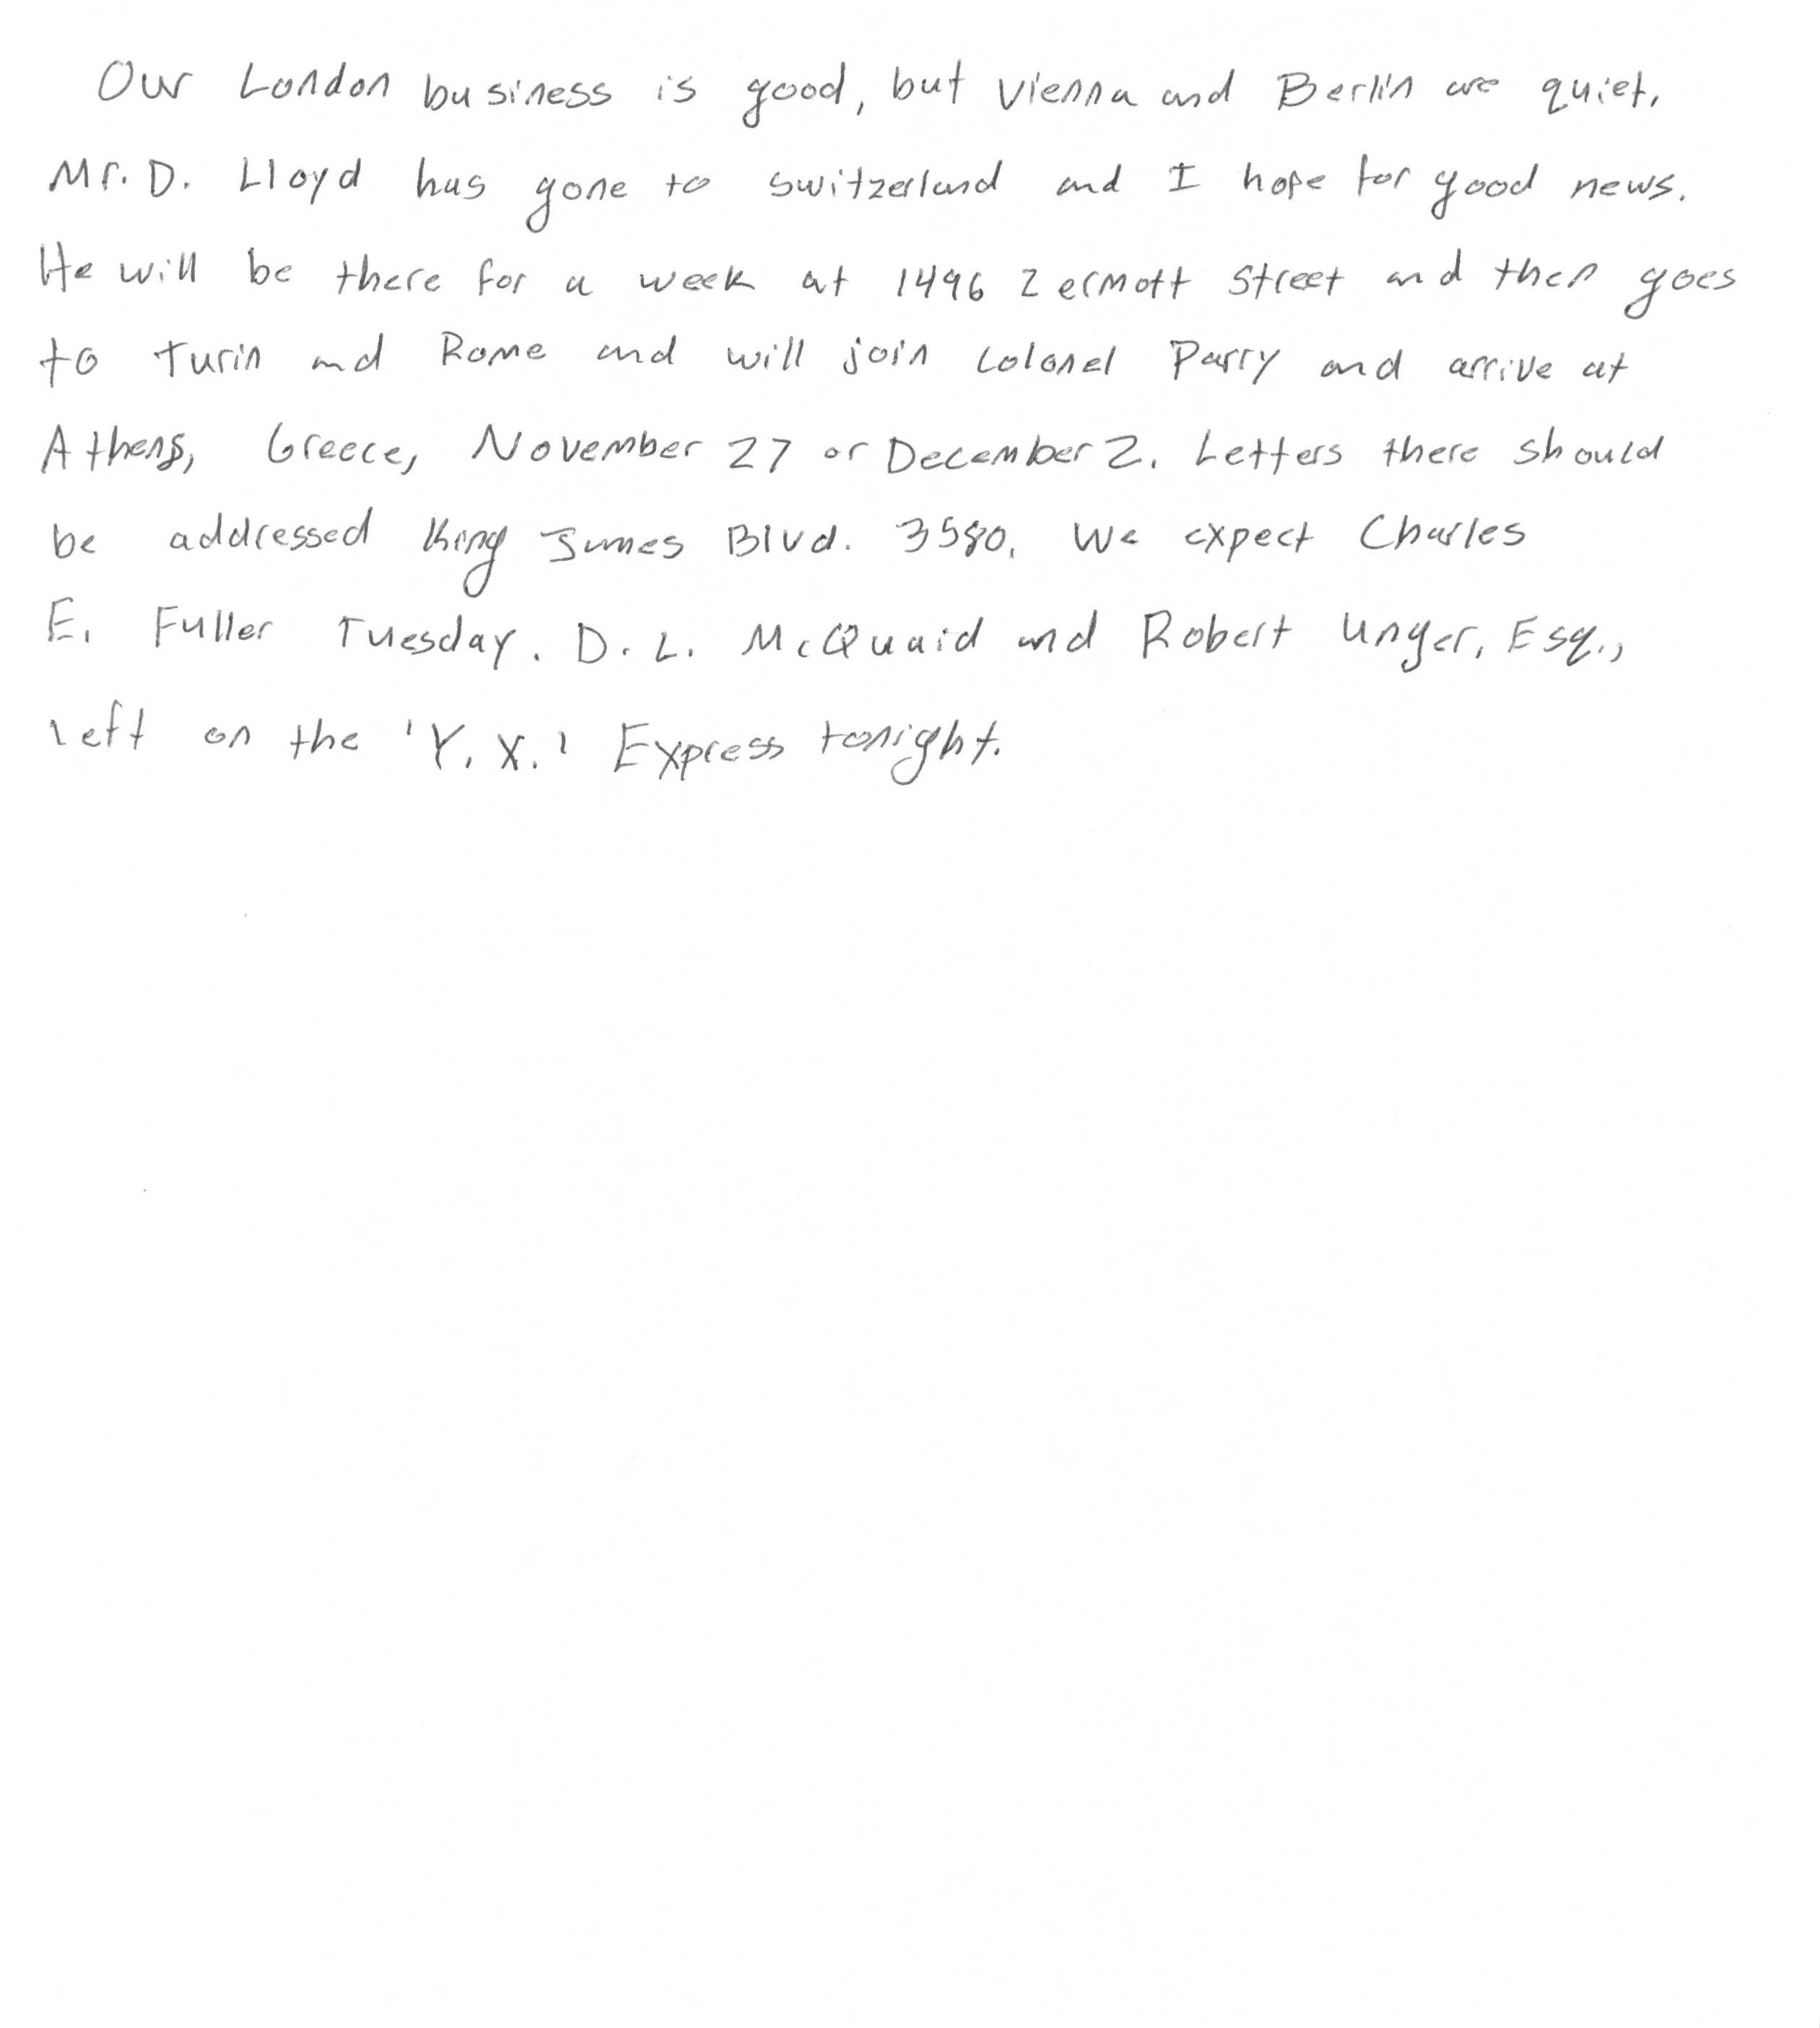 Our London business is good, but Vienna and Berlin are quiet.
Mr. D. Lloyd has gone to Switzerland and I hope for good news.
He will be there for a week at 1496 Zermott Street and then goes
to Turin and Rome and will join Colonel Parry and arrive at
Athens, Greece, November 27 or December 2. Letters there should
be addressed King James Blvd. 3580. We expect Charles
E. Fuller Tuesday. D. L. McQuaid and Robert Unger, Esq.,
left on the 'Y. X.' Express tonight.